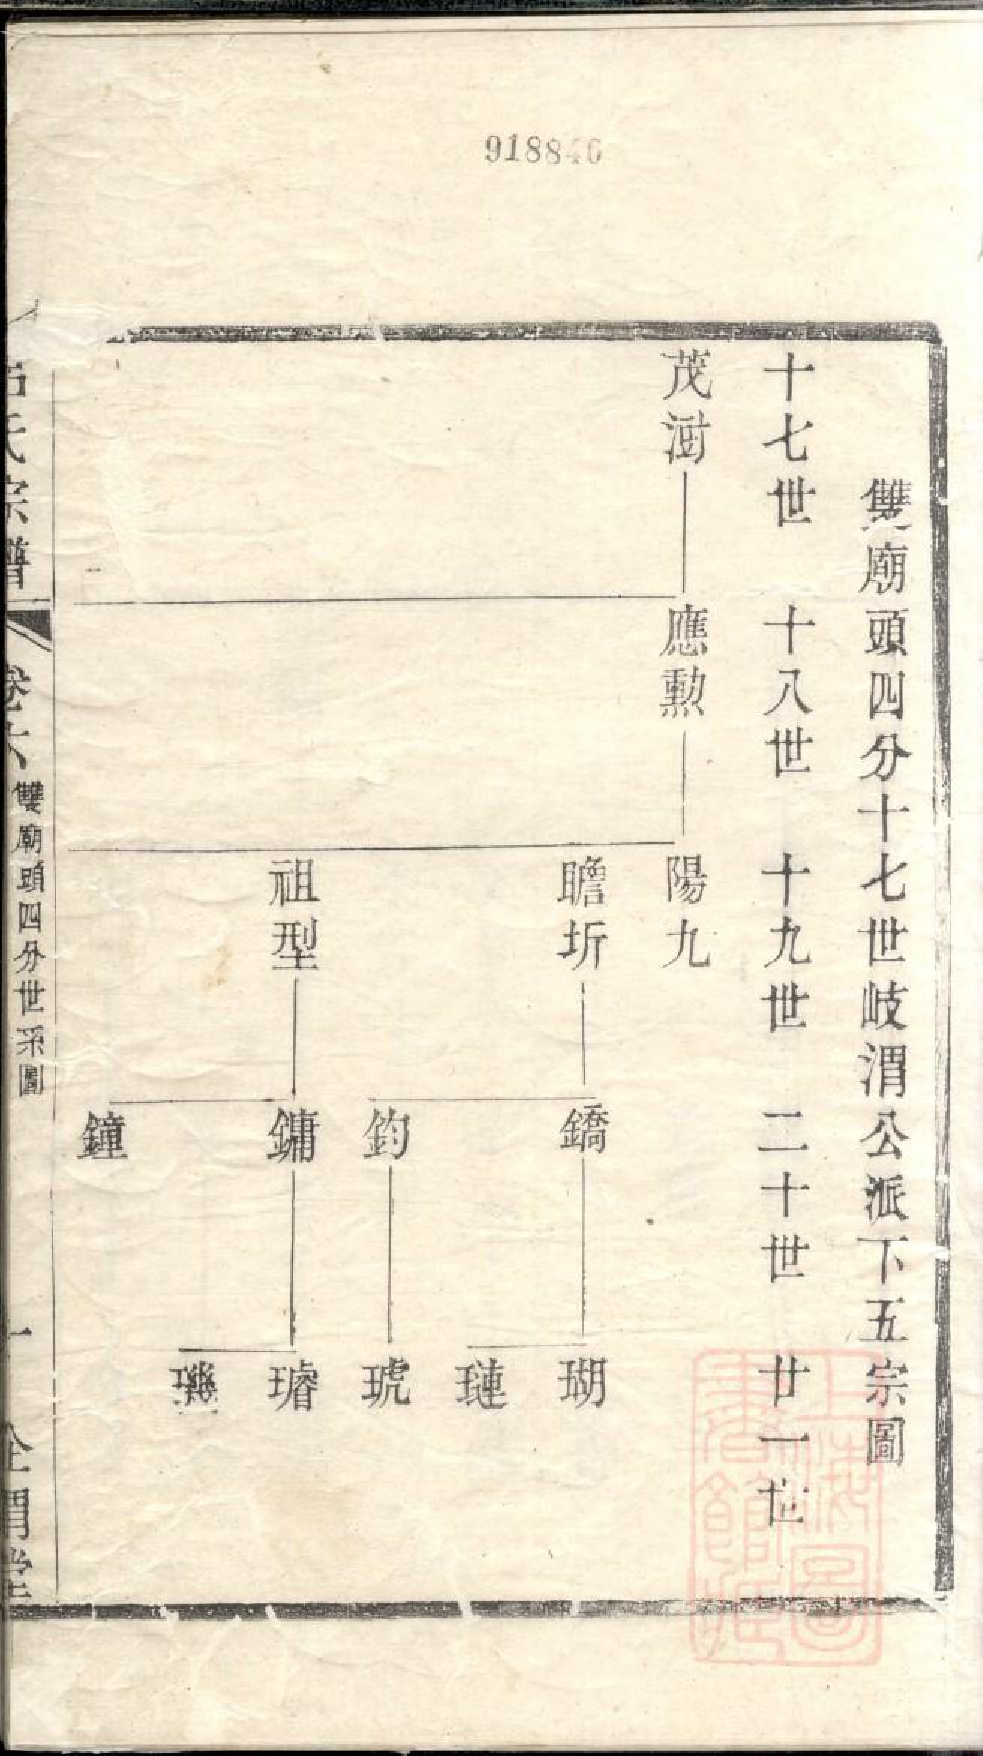 918840
雙廟頭四分十七世岐渭公派下五宗圖
十七世 十八世 十九世 二十世 廿一世
茂澍 應勳 陽九
瞻圻 鐈 瑚
璉
鈞 琥
祖型 鏞 璿
璣
鐘
呂氏宗譜 卷六 雙廟頭四分世系圖 一 全渭堂
上海圖書館藏